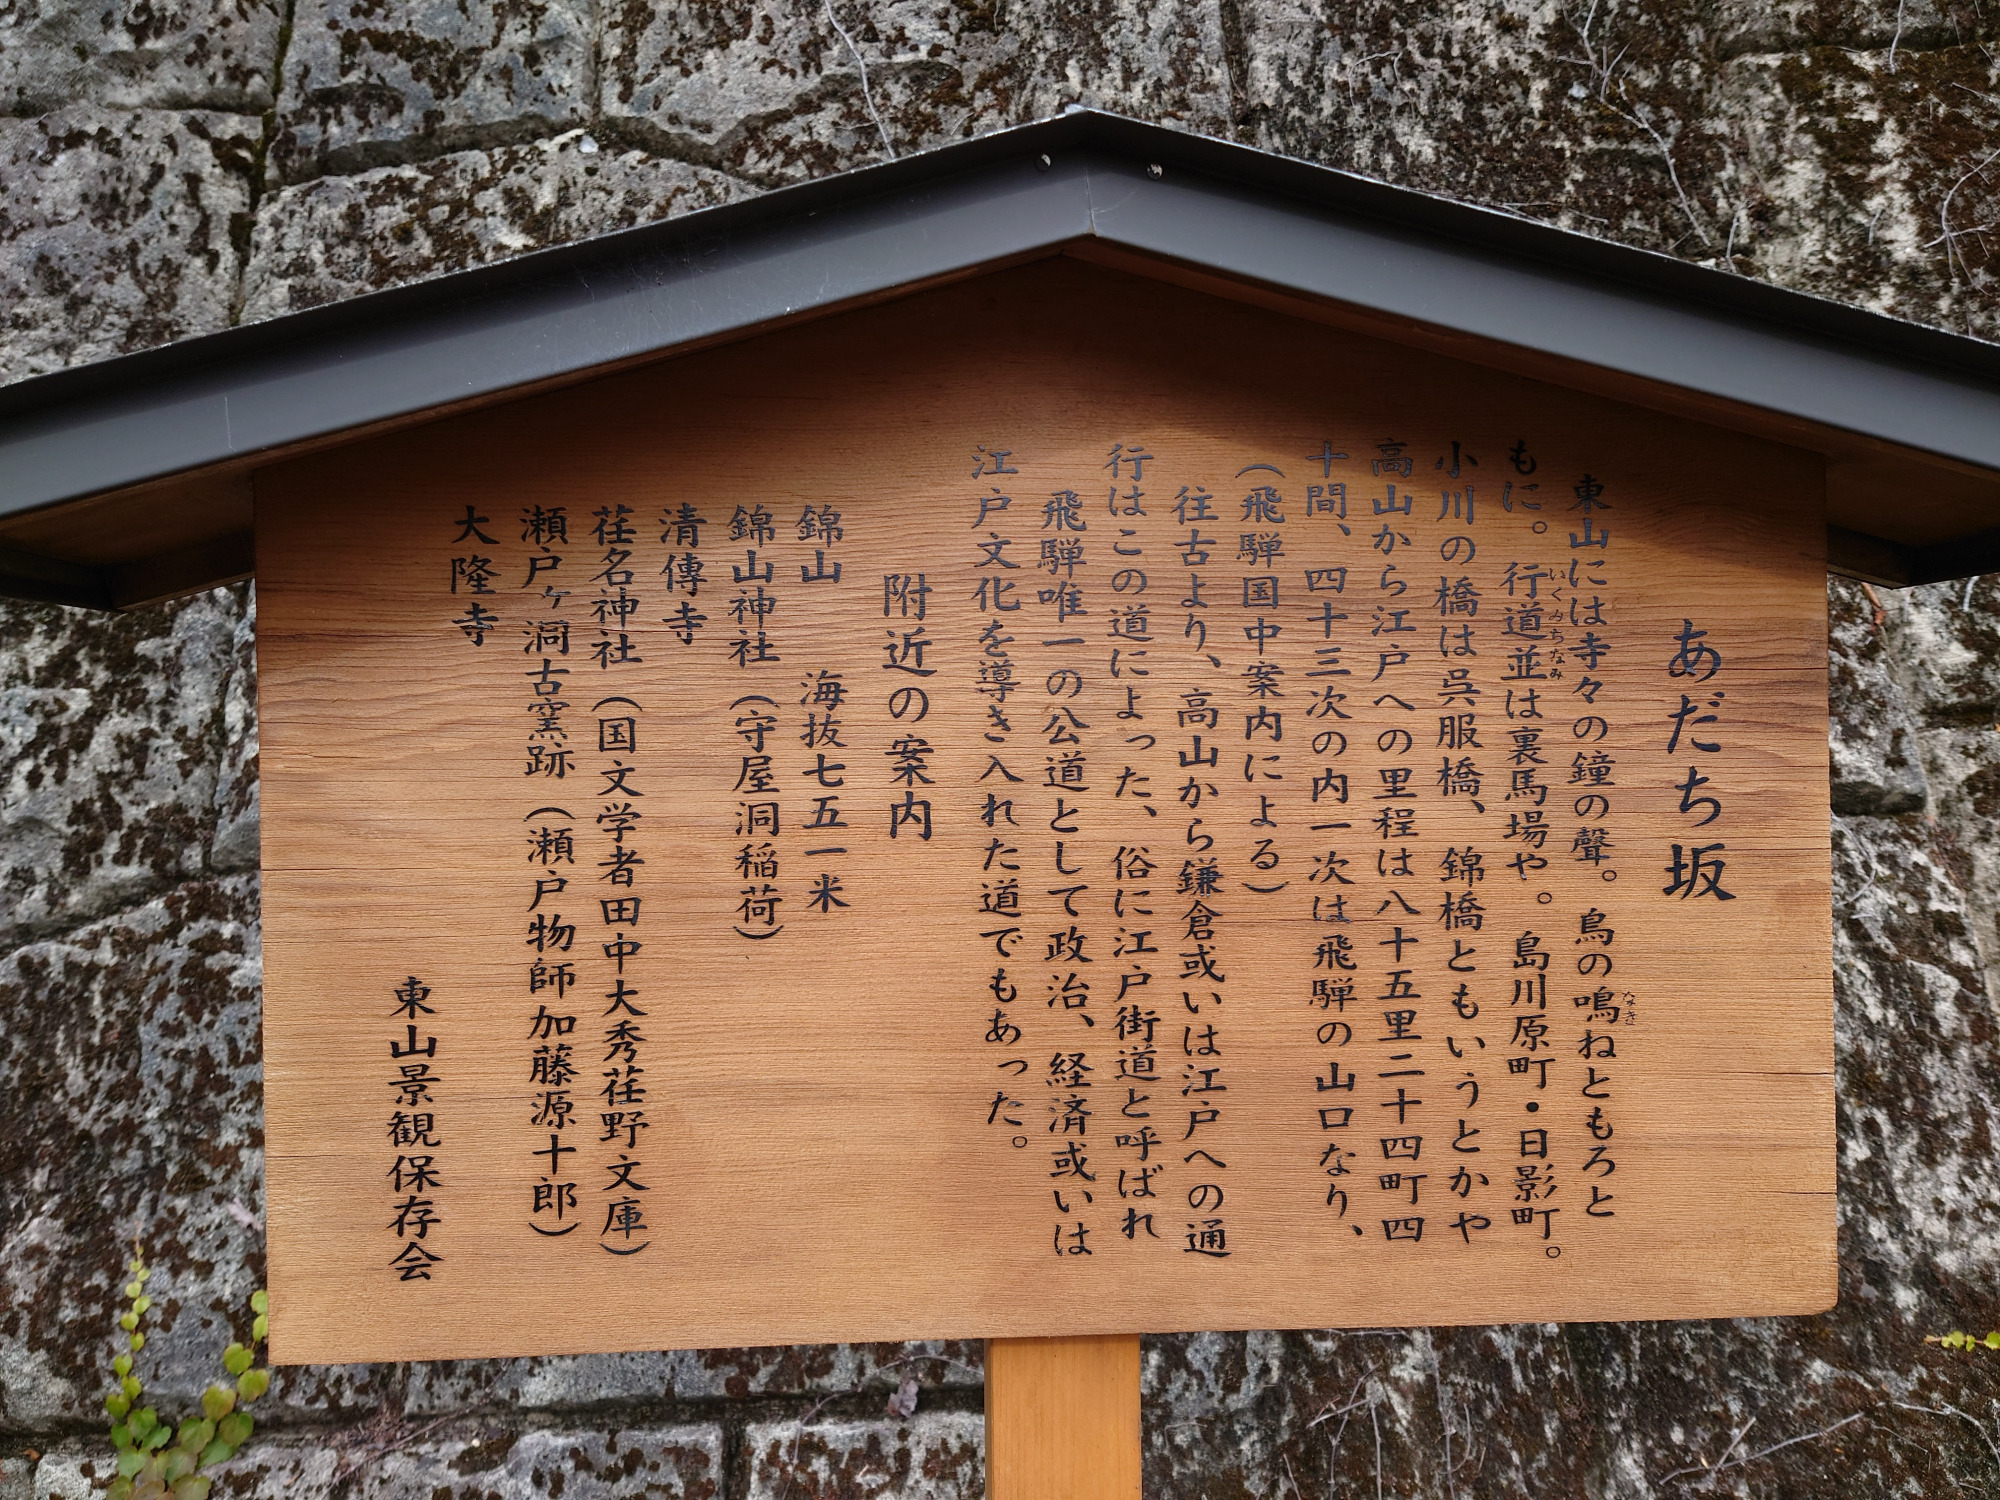 あだち坂
東山には寺々の鐘の聲。鳥の鳴ねともろと
なき
もに。行道並は裏馬場や。島川原町・日影町。
いくみちなみ
小川の橋は呉服橋、錦橋ともいうとかや
高山から江戸への里程は八十五里二十四町四
十間、四十三次の内一次は飛騨の山口なり、
（飛騨国中案内による）
往古より、高山から鎌倉或いは江戸への通
行はこの道によった、俗に江戸街道と呼ばれ
飛騨唯一の公道として政治、経済或いは
江戸文化を導き入れた道でもあった。
附近の案内
錦山　海抜七五一米
錦山神社（守屋洞稲荷）
清傳寺
荏名神社（国文学者田中大秀荏野文庫）
瀬戸ヶ洞古窯跡（瀬戸物師加藤源十郎）
大隆寺
東山景観保存会